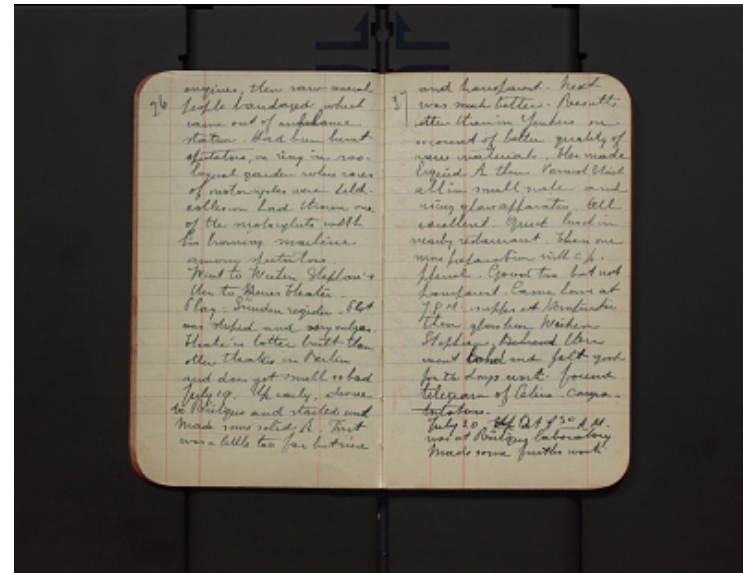 26
engines, then saw several
people bandaged, which
came out of ambulance
station. Had been burnt
spectators, in ring in zoo-
logical garden where races
of motorcycles were held.
collision had thrown one
of the motorcyclists with
his burning machine
among spectators.
Went to Weihen Stephan &
then to Neues theater.
Play: Sünden register. Plot
was stupid and very vulgar.
Theatre is better built than
other theatres in Berlin
and does not smell so bad
July 19. Up early, drove
to Rütgers and started and
made some solid A. First
was a little too far but nice
27
and transparent. Next
was much better. Results
better than in Yonkers on
account of better quality of
raw materials. Then made
liquid A then Varnish
all in small scale and
using glass apparatus. All
excellent. Quick lunch in
nearby restaurant. Then one
more preparation with c.p.
phenol. Good too but not
transparent. Came home at
7 P.M. supper at Kempinski
then glass beer Weihen
Stephan,
went to bed and felt good
for the days work. found
telegram of Celine.
July 20. At 8 30 A.M.
was at Rütgers laboratory
Made some further work